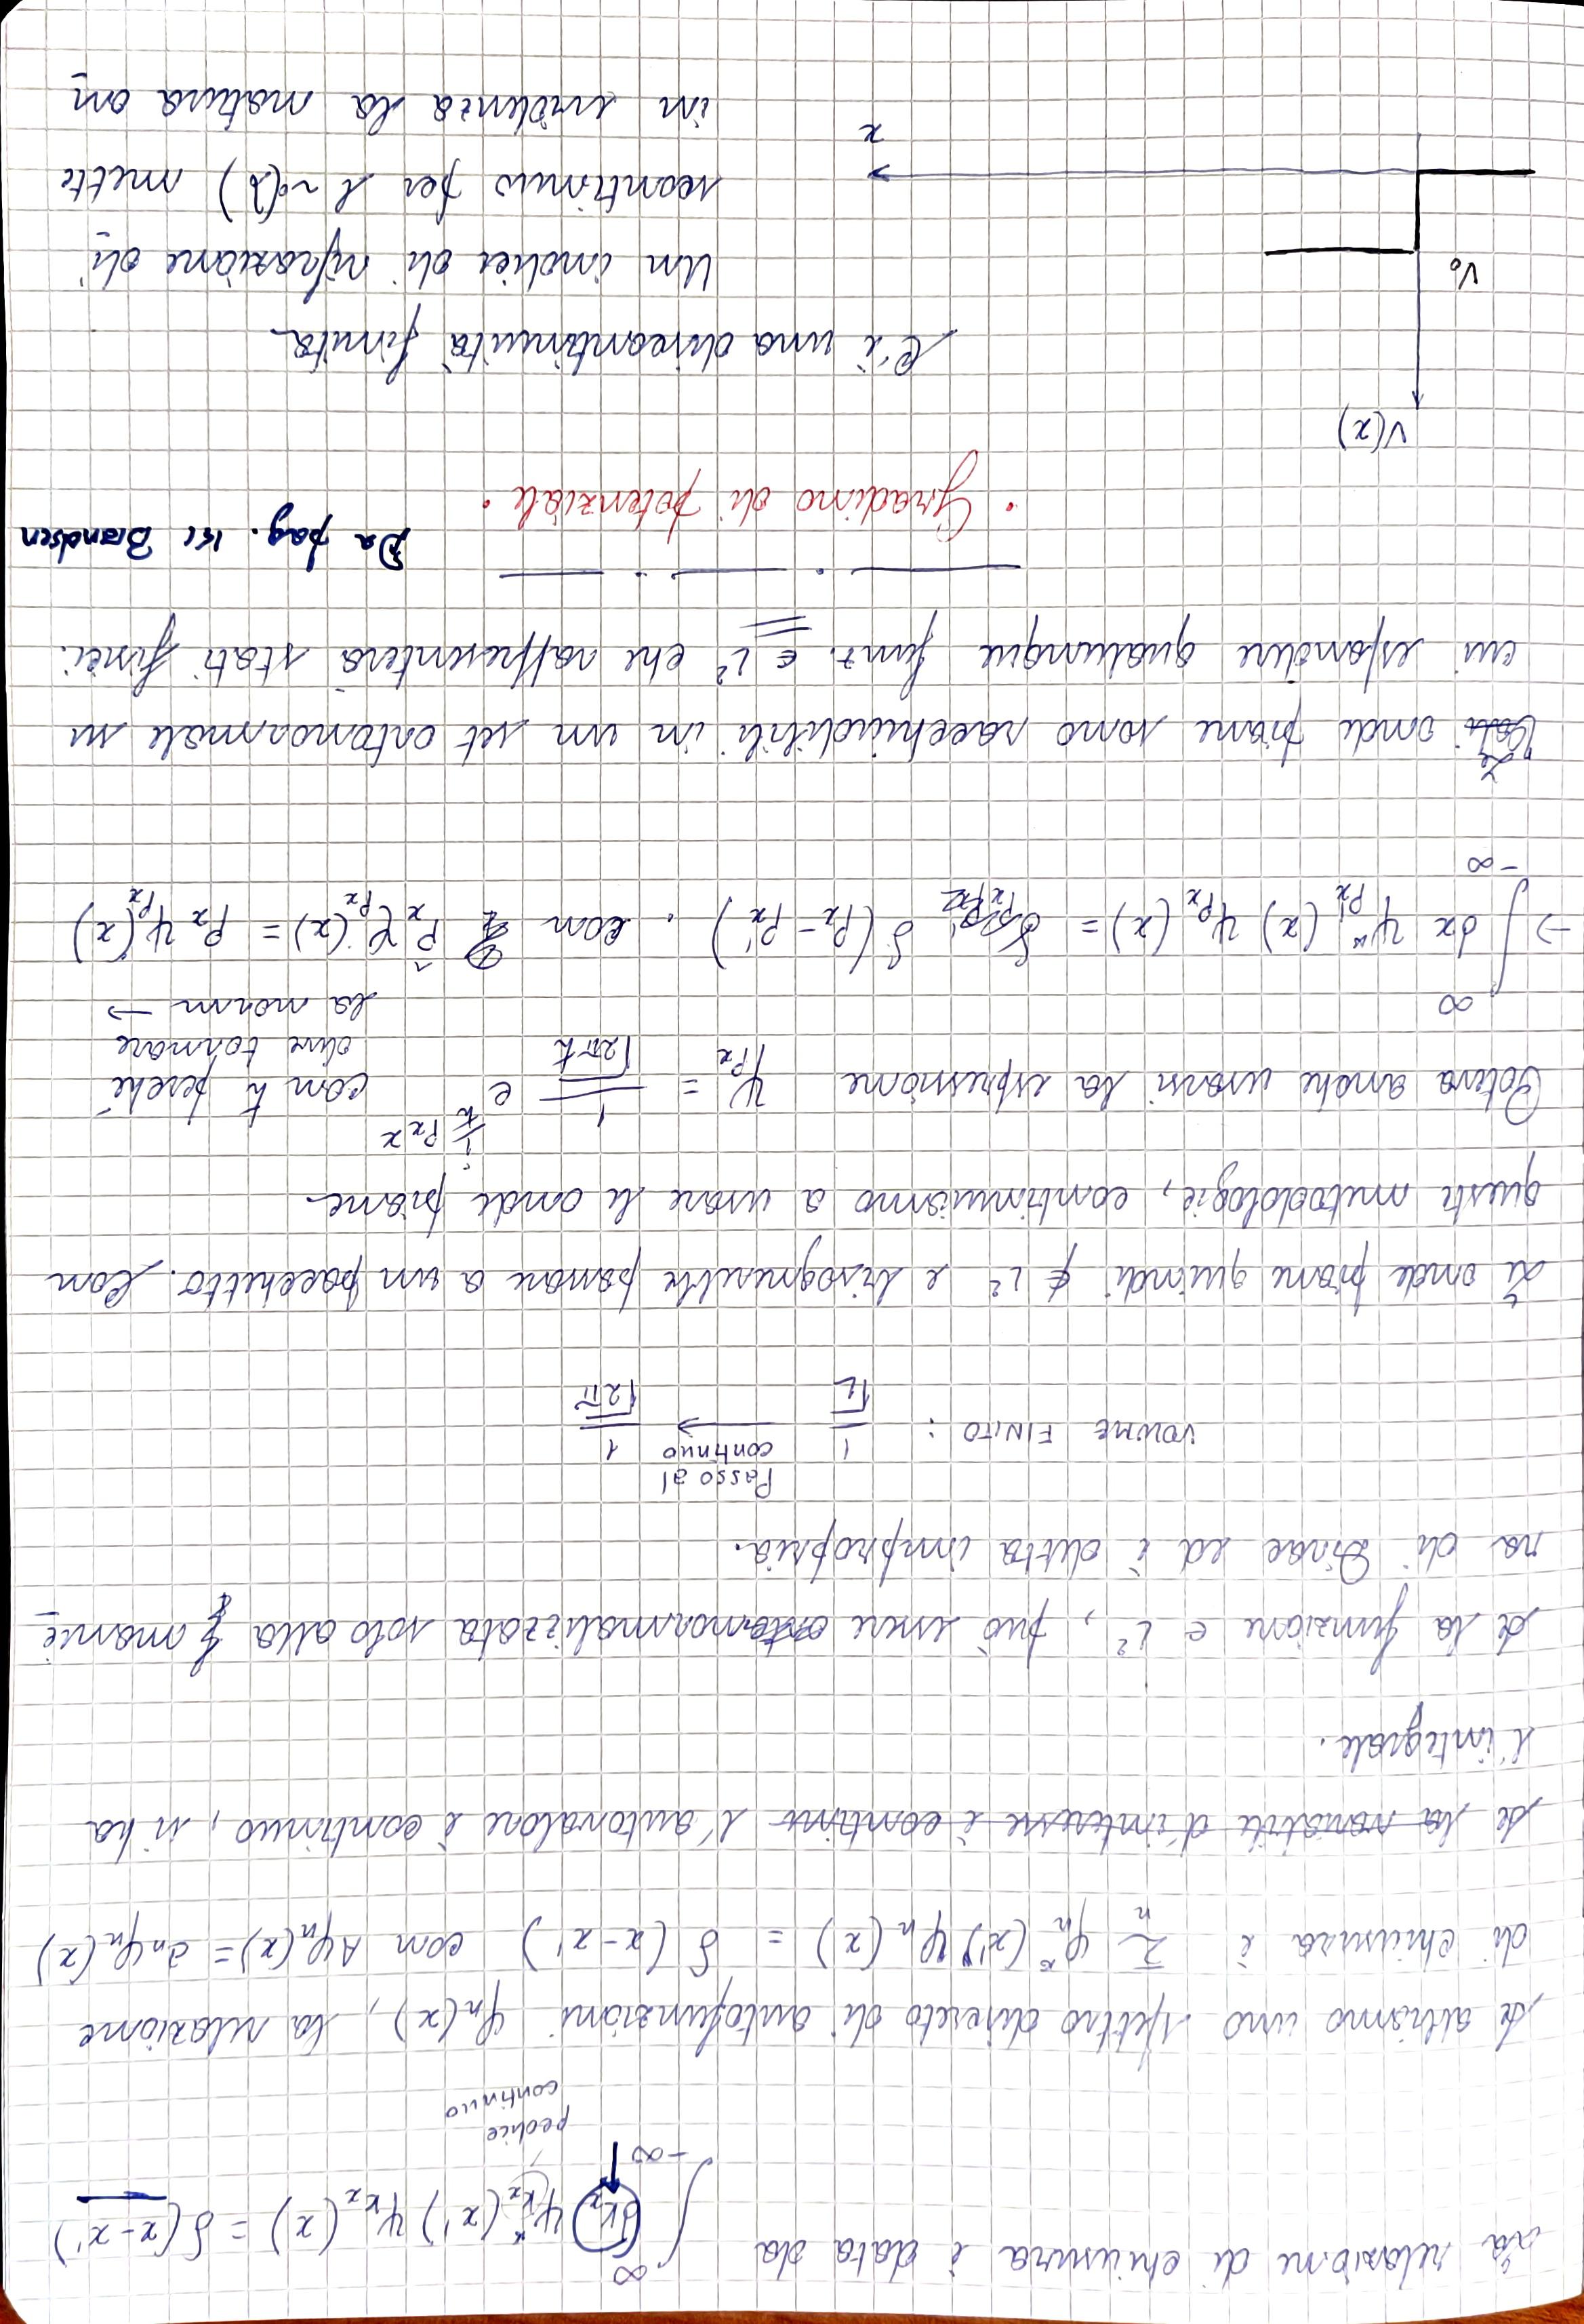 La relazione di chiusura è data da ∫_{-∞}^{∞} dk_x ψ*_{k_x}(x') ψ_{k_x}(x) = δ(x-x')
pedice
continuo
Se abbiamo uno spettro discreto di autofunzioni φ_n(x), la relazione
di chiusura è Σ_n φ_n^*(x') φ_n(x) = δ(x-x') con Aφ_n(x) = a_n φ_n(x)
Se la variabile d'interesse è continu l'autovalore è continuo, si ha
l'integrale.
Se la funzione ∈ L², può essere orto normalizzata solo alla manie
ra di Dirac ed è detta impropria.
VOLUME FINITO : 1/√L → 1/√2π
Passo al
continuo
Le onde piane quindi ∉ L² e bisognerebbe passare a un pacchetto. Con
queste metodologie, continuiamo a usare le onde piane.
Poteva anche usarsi la espressione ψ_{p_x} = 1/√(2πħ) e^{i/ħ p_x x} con ħ perché
deve tornare
la norm →
→ ∫_{-∞}^{∞} dx ψ*_{p_x'}(x) ψ_{p_x}(x) = δ(p_x - p_x') . con p̂_x ψ_{p_x}(x) = p_x ψ_{p_x}(x)
Le onde piane sono racchiudibili in un set ortonormale su
cui espandere qualunque funz. ∈ L² che rappresenterà stati fisici.
Da pag. Brandsen
· Gradino di potenziale ·
V(x)
C'è una discontinuità finita.
V₀
Un indice di rifrazione di
scontinuo per l ~ o(λ) mette
x
in evidenza la natura on